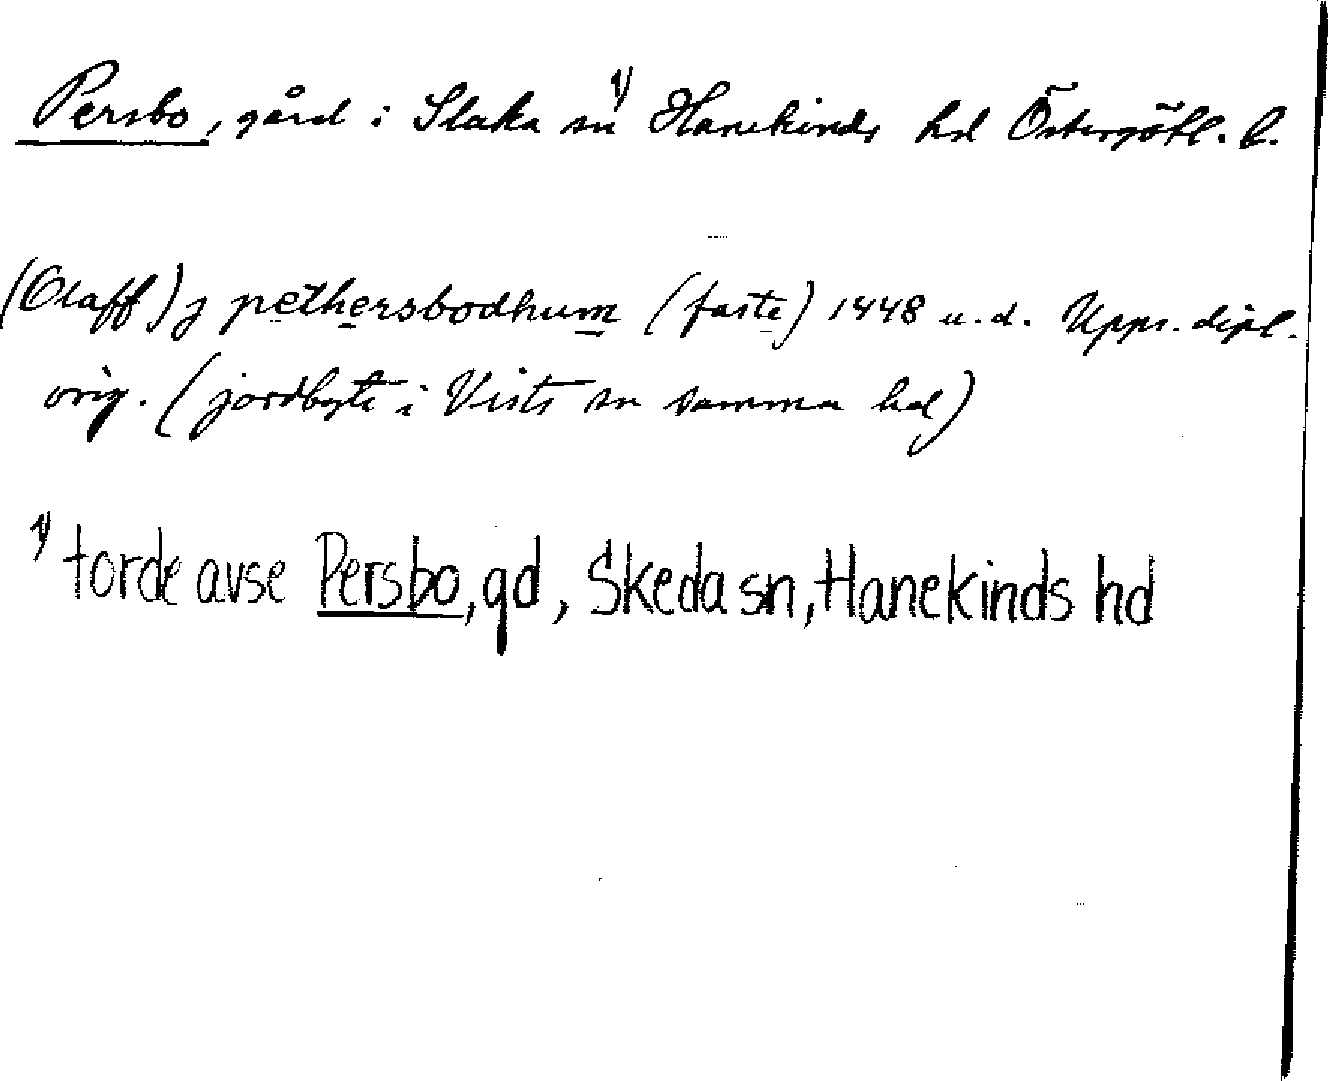 Persbo, gård i Slaka sn 1) Hanekinds hd Östergötl. l.
(Olaff) j pethersbodhum (faste) 1448 u. d. Upps. dipl.
orig. (jordbyte i Vists sn samma hd)
1) torde avse Persbo, gd, Skeda sn, Hanekinds hd